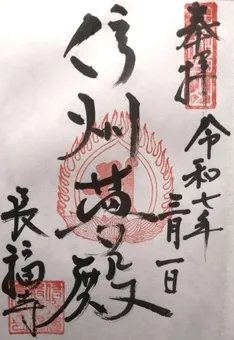 奉拝
令和七年
三月一日
信州夢殿
長福寺